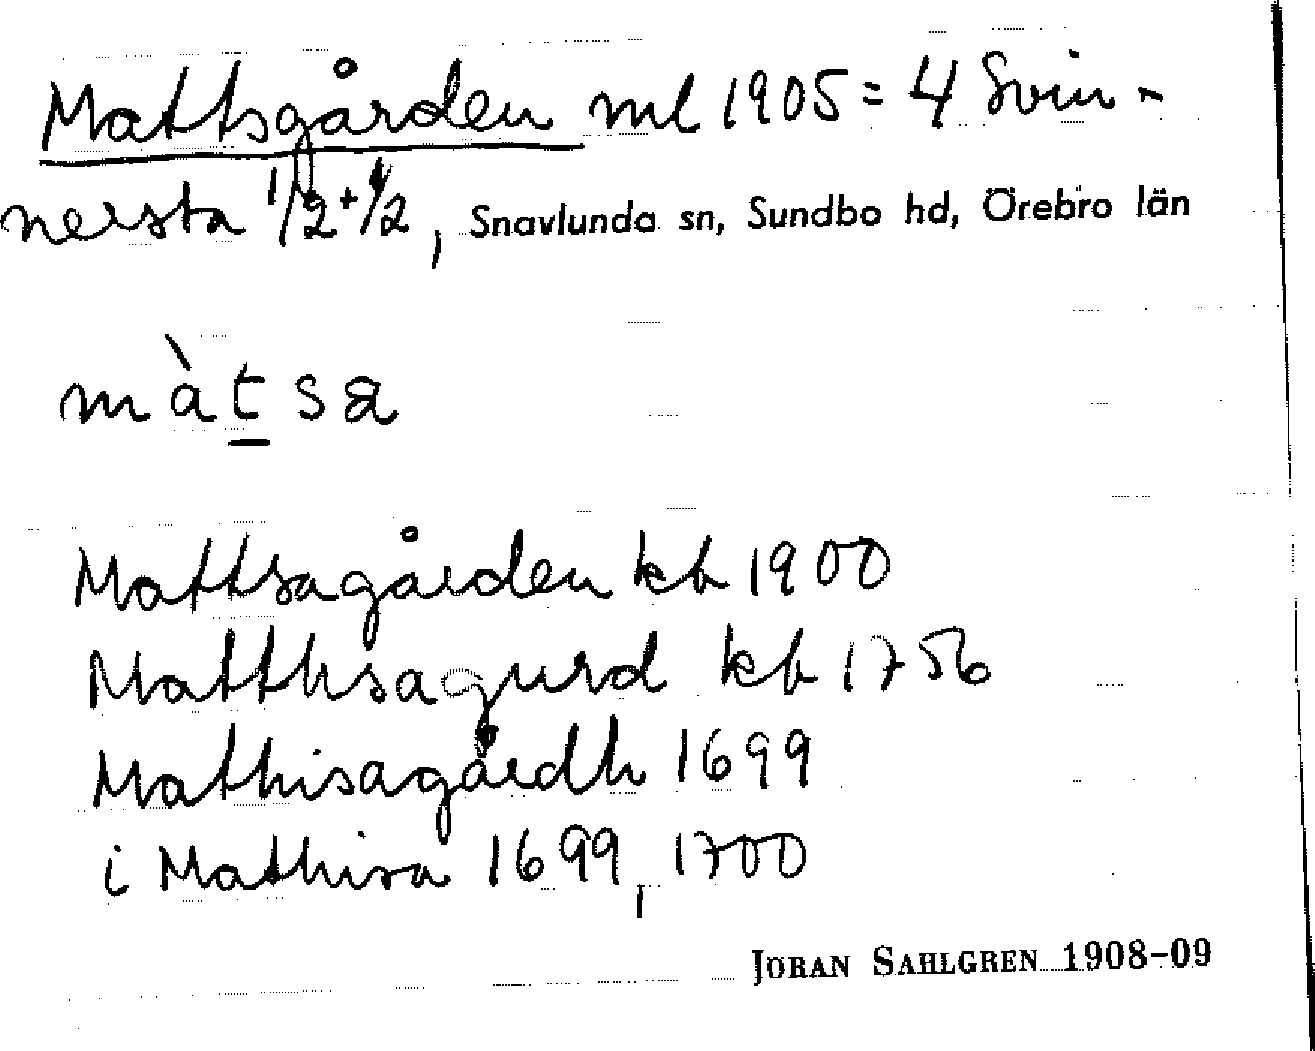 Mattsgården ml 1905 = 4 Svin-
nersta 1/2 + 1/2, Snavlunda sn, Sundbo hd, Örebro län
màtsa
Mattsagården kb 1900
Matthsagurd kb 1756
Mathisagårdh 1699
i Mathisa 1699, 1700
JÖRAN SAHLGREN 1908-09